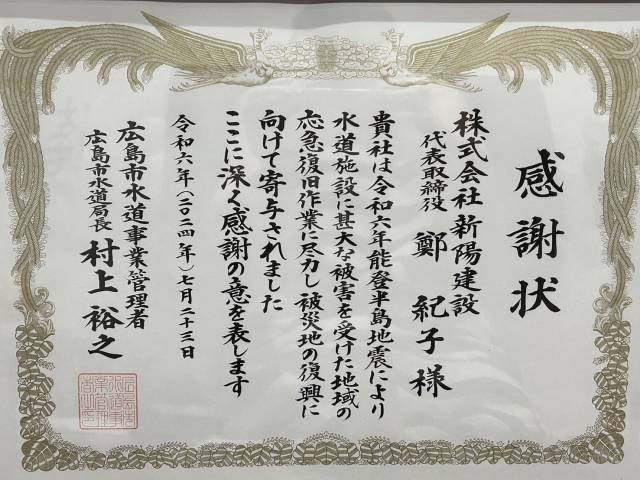 感謝状
株式会社新陽建設
代表取締役 鄭紀子様
貴社は令和六年能登半島地震により
水道施設に甚大な被害を受けた地域の
応急復旧作業に尽力し被災地の復興に
向けて寄与されました
ここに深く感謝の意を表します
令和六年(二〇二四年)七月二十三日
広島市水道事業管理者
広島市水道局長 村上裕之